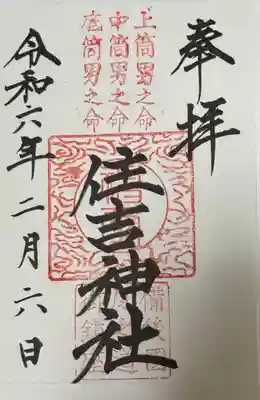 奉拝
上筒男之命
中筒男之命
底筒男之命
住吉神社
備後國
令和六年二月六日